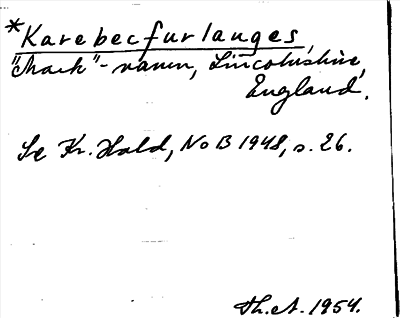 *Karebecfurlanges,
"Mark"-navn, Lincolnshire,
England.
Se Kr. Hald, NoB 1948, s. 26.
Th.A. 1954.